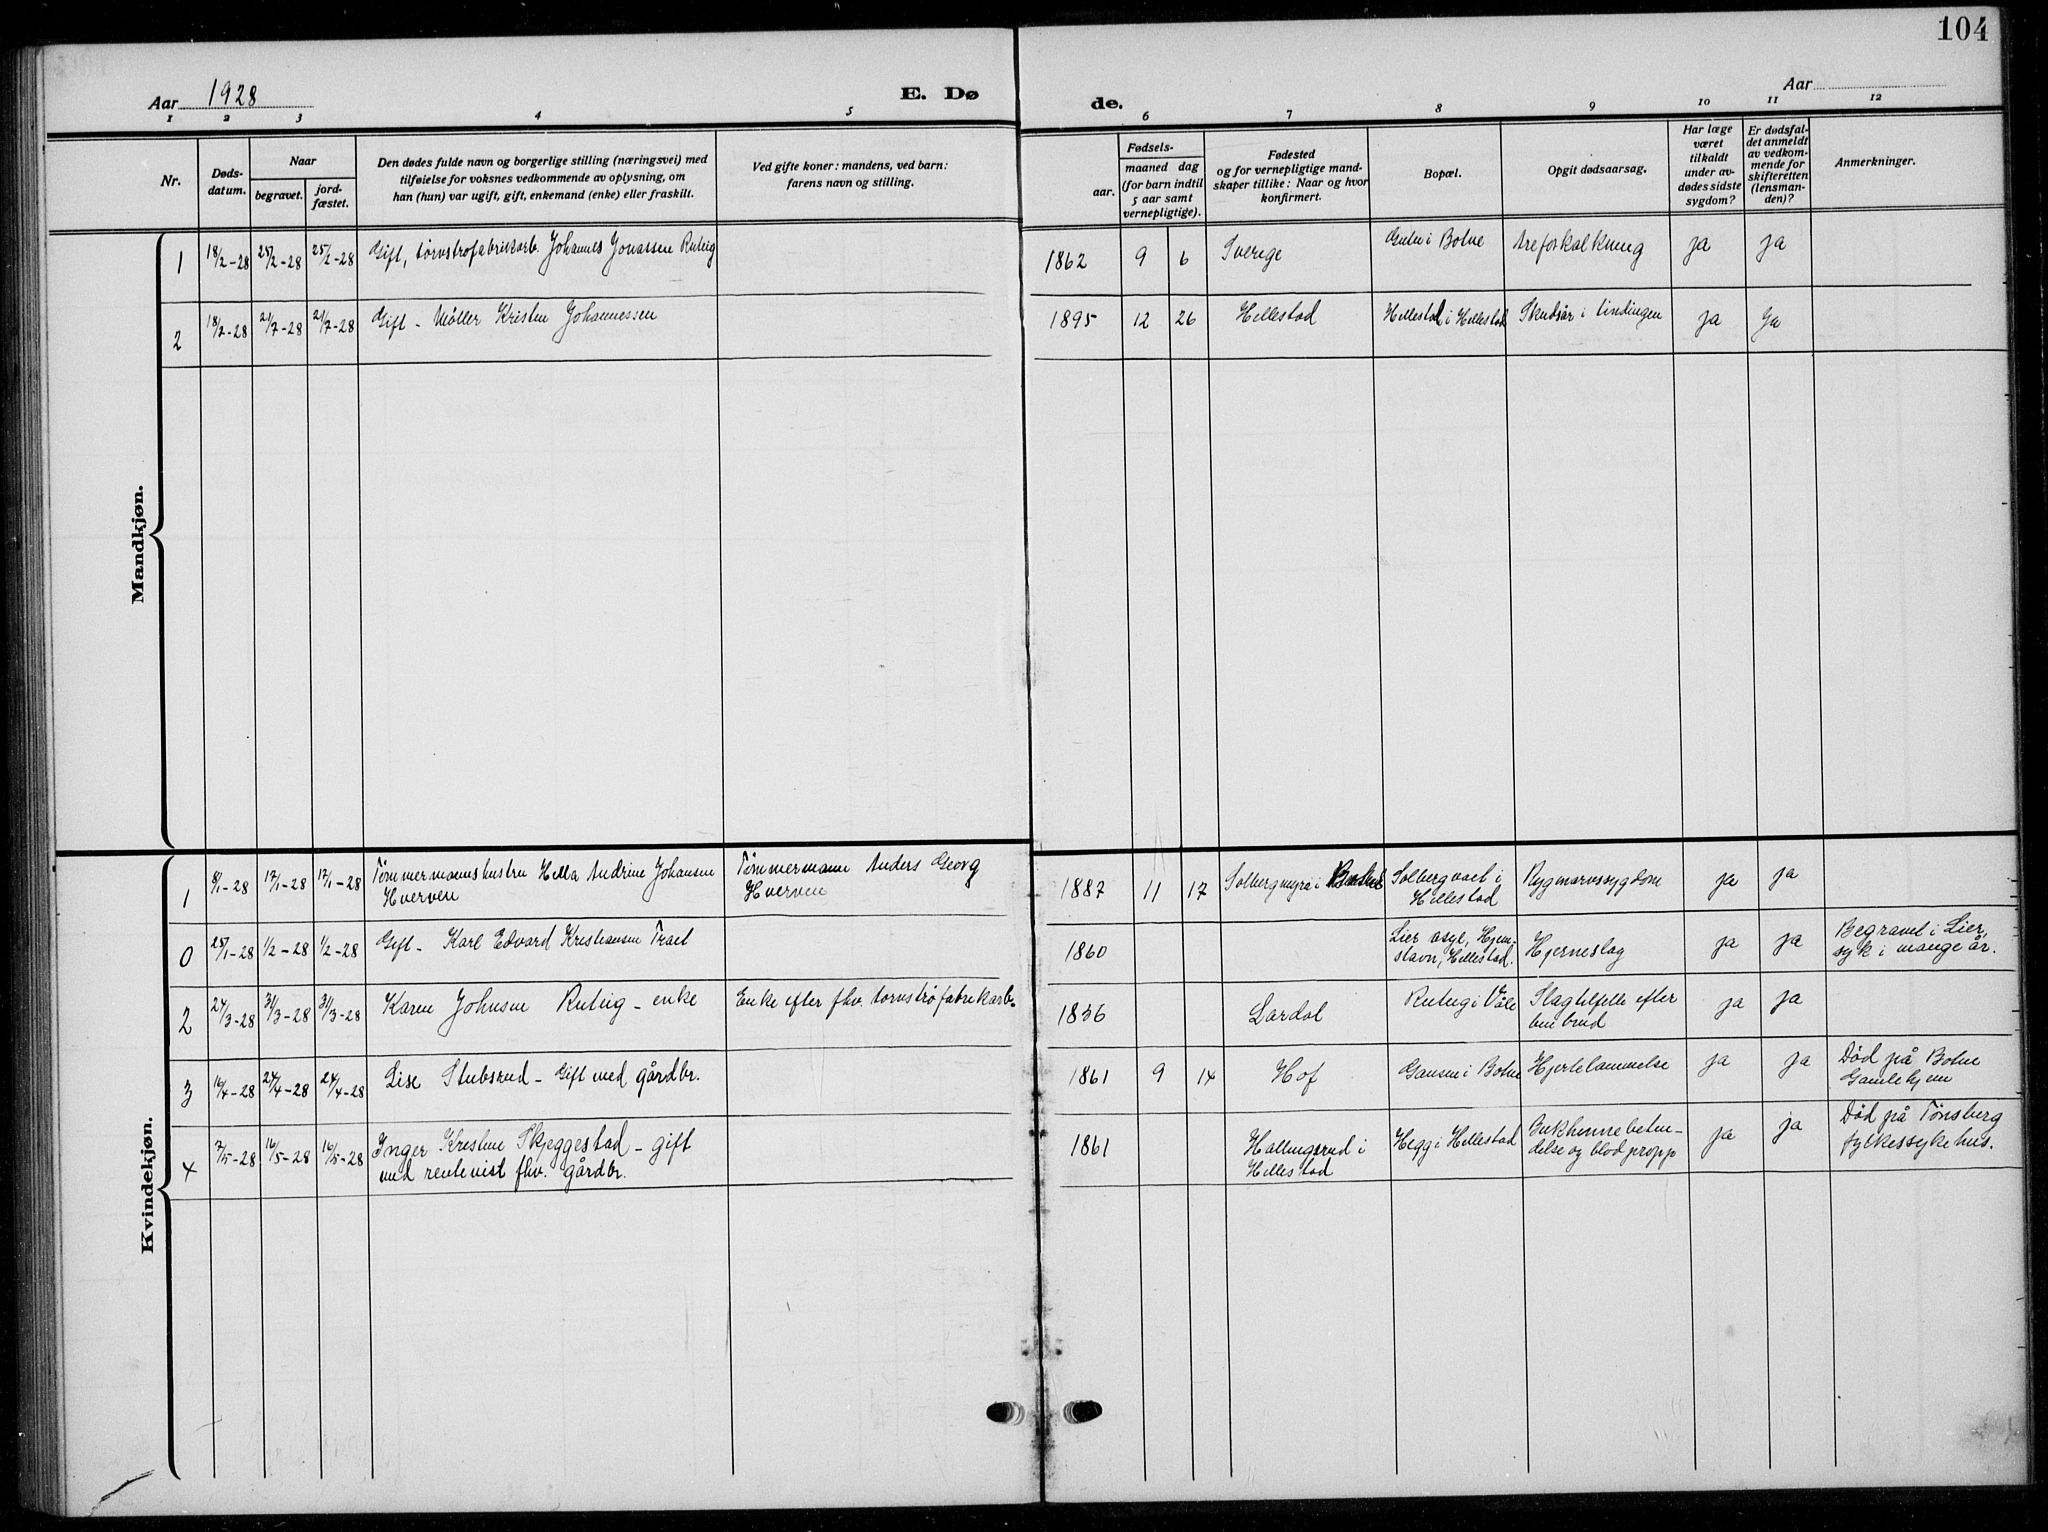 104
Aar 1928
E. Dø
de.
Aar
1 2 3 4 5
6 7 8 9 10 11 12
Nr.
Døds-
datum.
Naar
begravet.
jord-
fæstet.
Den dødes fulde navn og borgerlige stilling (næringsvei) med
tilføielse for voksnes vedkommende av oplysning, om
han (hun) var ugift, gift, enkemand (enke) eller fraskilt.
Ved gifte koner: mandens, ved barn:
farens navn og stilling.
Fødsels-
aar.
maaned dag
(for barn indtil
5 aar samt
vernepligtige).
Fødested
og for vernepligtige mand-
skaper tillike: Naar og hvor
konfirmert.
Bopæl.
Opgit dødsaarsag.
Har læge
været
tilkaldt
under av-
dødes sidste
sygdom?
Er dødsfal-
det anmeldt
av vedkom-
mende for
skifteretten
(lensman-
den)?
Anmerkninger.
Mandkjøn.
1 18/2-28 25/2-28 25/2-28 Gift, torvstrøfabrikarb. Johannes Jonassen 1862 9 6 Sverige i Botne Åreforkalkning ja ja
2 18/7-28 21/7-28 21/7-28 Gift - Møller Kristen Johannessen 1895 12 26 Hillestad Hillestad i Hillestad Skudsår i tindingen ja Ja
Kvindekjøn.
1 8/1-28 12/1-28 12/1-28 Tømmermannshustru Hilla Andrine Johansen
Hverven
Tømmermann Anders Georg
Hverven
1887 11 17 Solbergmyra i Botne Solberg i
Hillestad
Rygmarvssygdom ja ja
0 25/1-28 1/2-28 1/2-28 Gift - Karl Edvard Kristiansen 1860 Lier asyl, Hjem-
stavn, Hillestad.
Hjerneslag ja ja Begravet i Lier,
syk i mange år.
2 24/3-28 31/3-28 31/3-28 Karen Johnsen - enke Enke efter fhv. torvstrøfabrikarb. 1836 Lardal i Våle Slagtilfelle efter
benbrud
ja ja
3 16/4-28 24/4-28 24/4-28 Lise Stubsrud - Gift med gårdbr. 1861 9 14 Hof i Botne Hjertelammelse ja ja Død på Botne
Gamlehjem
4 7/5-28 16/5-28 16/5-28 Inger Kristine Skjeggestad - gift
med rentenist fhv. gårdbr.
1861 Hallingsrud i
Hillestad
Hegg i Hillestad Bukhinnebeten-
delse og blodpropp
ja ja Død på Tønsberg
fylkessykehus.